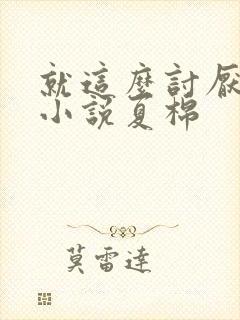 就這麼討厭
小說夏棉
莫雷達